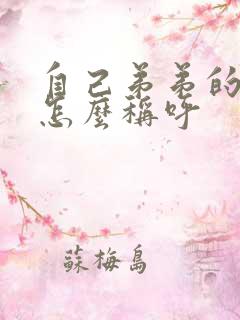 自己弟弟的
怎麼稱呼
蘇梅島